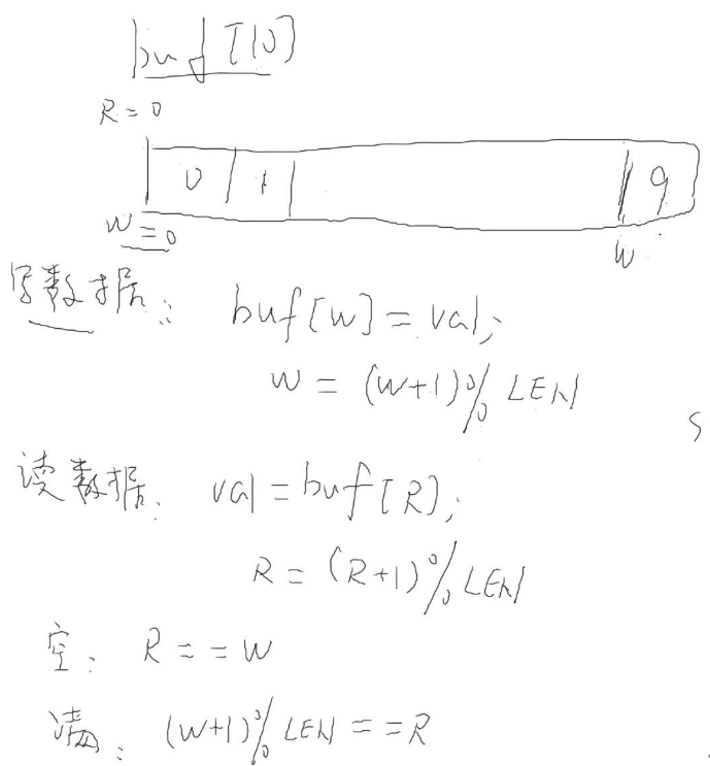 buf[10]
R=0
0 1 9
W=0
W
写数据: buf[w]=val;
W=(W+1)%LEN
读数据. val=buf[R];
R=(R+1)%LEN
空: R==W
满: (W+1)%LEN==R